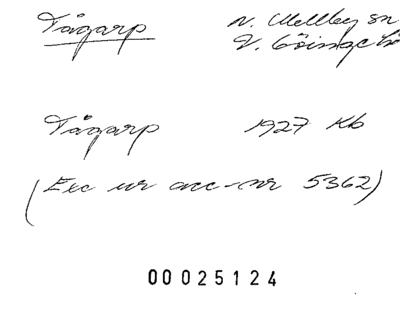 Tågarp N. Mellby sn
V. Göinge hd
Tågarp 1927 Kb
(Exc ur acc-nr 5362)
00025124